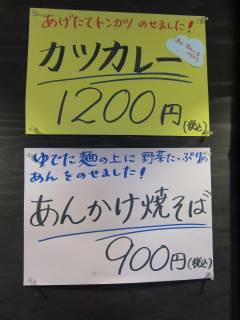 あげたてトンカツ のせました!
カツカレー
1200円
(税込)
ゆでた麺の上に 野菜たっぷりの
あんをのせました!
あんかけ焼そば
900円(税込)